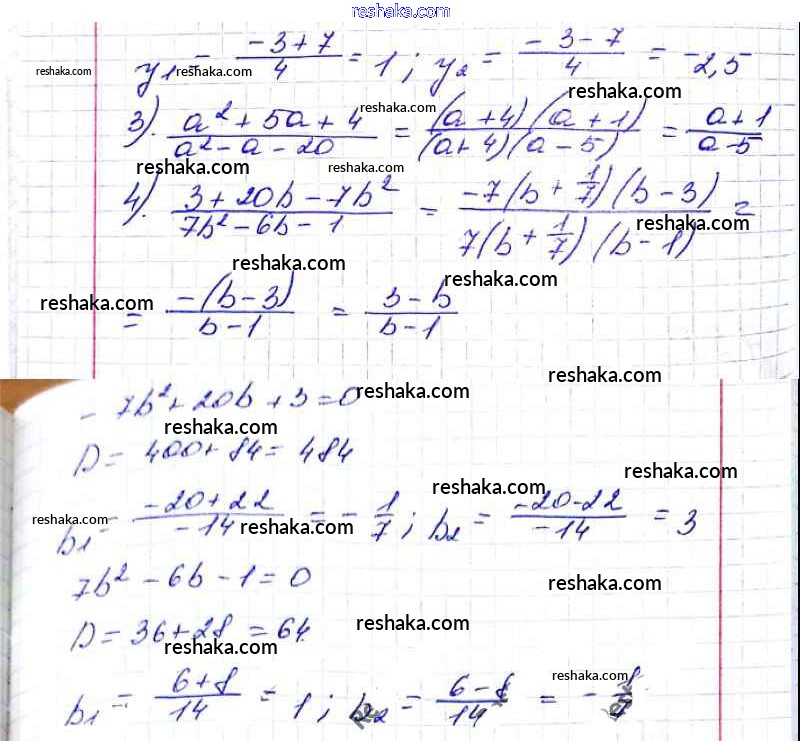 reshaka.com
y₁ = (-3+7)/4 = 1; y₂ = (-3-7)/4 = -2,5
reshaka.com reshaka.com reshaka.com
3). (a² + 5a + 4)/(a² - a - 20) = ((a+4)(a+1))/((a+4)(a-5)) = (a+1)/(a-5)
reshaka.com reshaka.com
reshaka.com reshaka.com
4). (3+20b-7b²)/(7b²-6b-1) = (-7(b+1/7)(b-3))/(7(b+1/7)(b-1)) =
reshaka.com
reshaka.com reshaka.com
reshaka.com
= (-(b-3))/(b-1) = (3-b)/(b-1)
reshaka.com
-7b²+20b+3=0 reshaka.com
reshaka.com
D = 400+84 = 484
reshaka.com reshaka.com
b₁ = (-20+22)/(-14) = -1/7; b₂ = (-20-22)/(-14) = 3
reshaka.com reshaka.com
7b² - 6b - 1 = 0
reshaka.com
D = 36+28 = 64 reshaka.com
reshaka.com
b₁ = (6+8)/14 = 1; b₂ = (6-8)/14 = -1/7